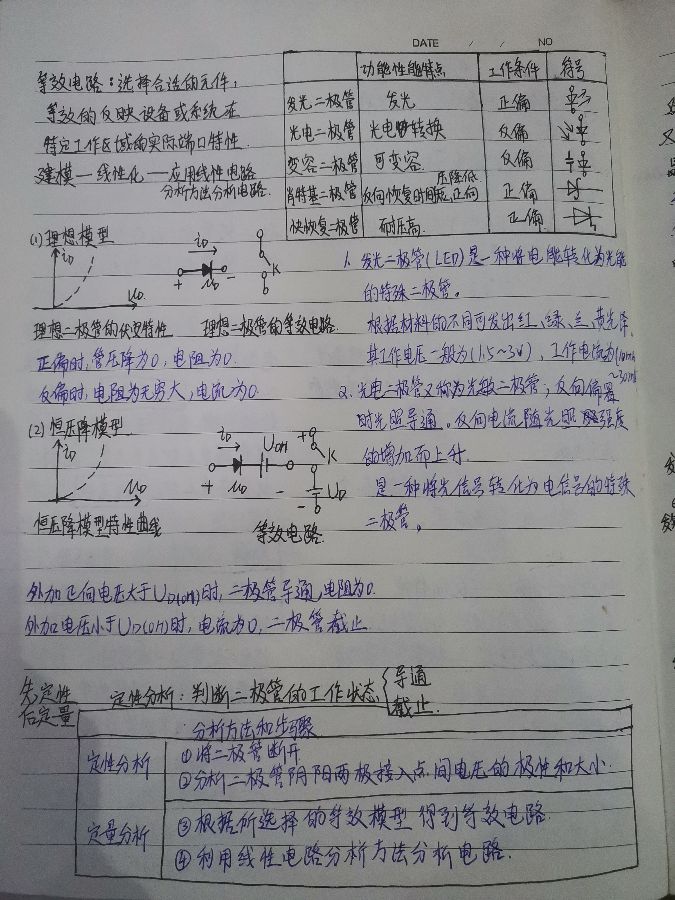 DATE / / NO
等效电路：选择合适的元件，
等效的反映设备或系统在
特定工作区域的实际端口特性.
建模—线性化—应用线性电路
分析方法分析电路.
功能性能特点 工作条件 符号
发光二极管 发光 正偏
光电二极管 光电转换 反偏
变容二极管 可变容. 反偏
肖特基二极管 反向恢复时间短,正向压降低 正偏
快恢复二极管 耐压高. 正偏
(1)理想模型
iD
uD
iD
+ uD -
K
理想二极管的伏安特性 理想二极管的等效电路.
正偏时,管压降为0,电阻为0.
反偏时,电阻为无穷大,电流为0.
(2)恒压降模型
iD
uD
iD UON
+ uD - + K
- UD
恒压降模型特性曲线 等效电路.
1. 发光二极管(LED)是一种将电能转化为光能
的特殊二极管。
根据材料的不同可发出红、绿、兰、黄光等,
其工作电压一般为(1.5~3V)，工作电流为(10mA
~30mA)
2. 光电二极管又称为光敏二极管，反向偏置
时光照导通。反向电流随光照强度
的增加而上升.
是一种将光信号转化为电信号的特殊
二极管。
外加正向电压大于UD(on)时,二极管导通,电阻为0.
外加电压小于UD(on)时,电流为0,二极管截止.
先定性
后定量
定性分析：判断二极管的工作状态 导通
截止.
分析方法和步骤
定性分析
①将二极管断开
②分析二极管阴阳两极接入点间电压的极性和大小.
定量分析
③根据所选择的等效模型得到等效电路.
④利用线性电路分析方法分析电路.